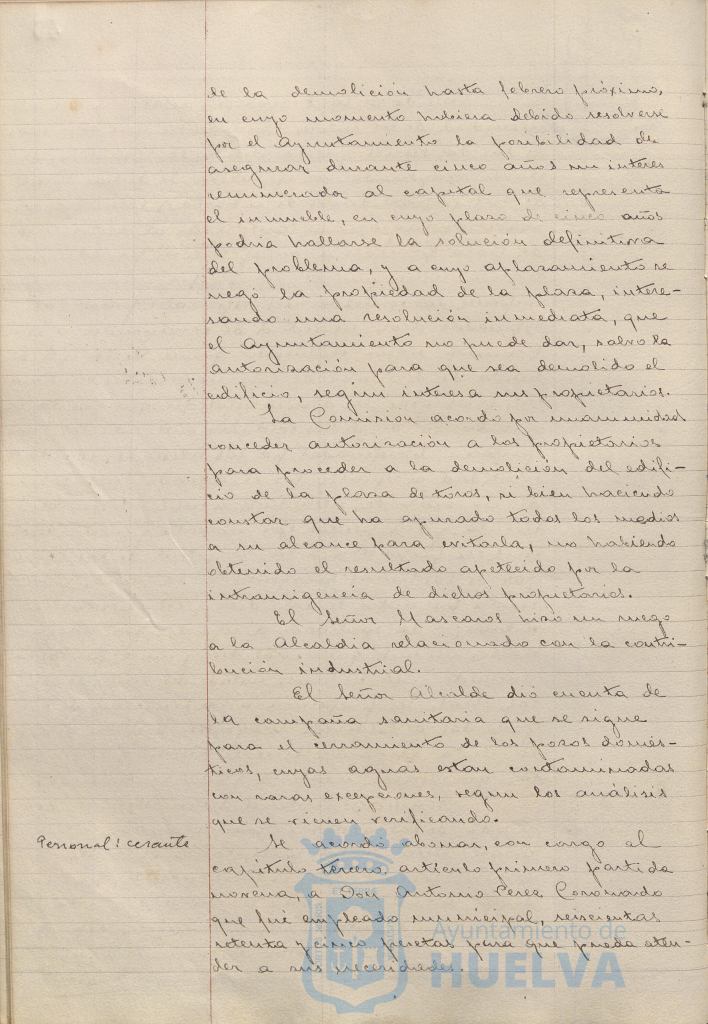 de la demolición hasta febrero próximo,
en cuyo momento hubiera debido resolverse
por el Ayuntamiento la posibilidad de
asegurar durante cinco años un interes
remunerador al capital que representa
el inmueble, en cuyo plazo de cinco años
podria hallarse la solución definitiva
del problema, y a cuyo aplazamiento se
negó la propiedad de la plaza, intere-
sando una resolución inmediata, que
el Ayuntamiento no puede dar, salvo la
autorización para que sea demolido el
edificio, según interesa sus propietarios.
La Comision acordó por unanimidad
conceder autorización a los propietarios
para proceder a la demolición del edifi-
cio de la plaza de toros, si bien haciendo
constar que ha apurado todos los medios
a su alcance para evitarla, no habiendo
obtenido el resultado apetecido por la
intransigencia de dichos propietarios.
El Señor Mascaros hizo un ruego
a la Alcaldia relacionado con la contri-
bución industrial.
El Señor Alcalde dió cuenta de
la campaña sanitaria que se sigue
para el cerramiento de los pozos domés-
ticos, cuyas aguas estan contaminadas
con raras excepciones, segun los análisis
que se vienen verificando.
Personal: cesante
Se acordó abonar, con cargo al
capitulo tercero, articulo primero partida
novena, a Don Antonio Perez Coronado
que fué empleado municipal, seiscientas
setenta y cinco pesetas para que pueda aten-
der a sus necesidades.
Ayuntamiento de
HUELVA